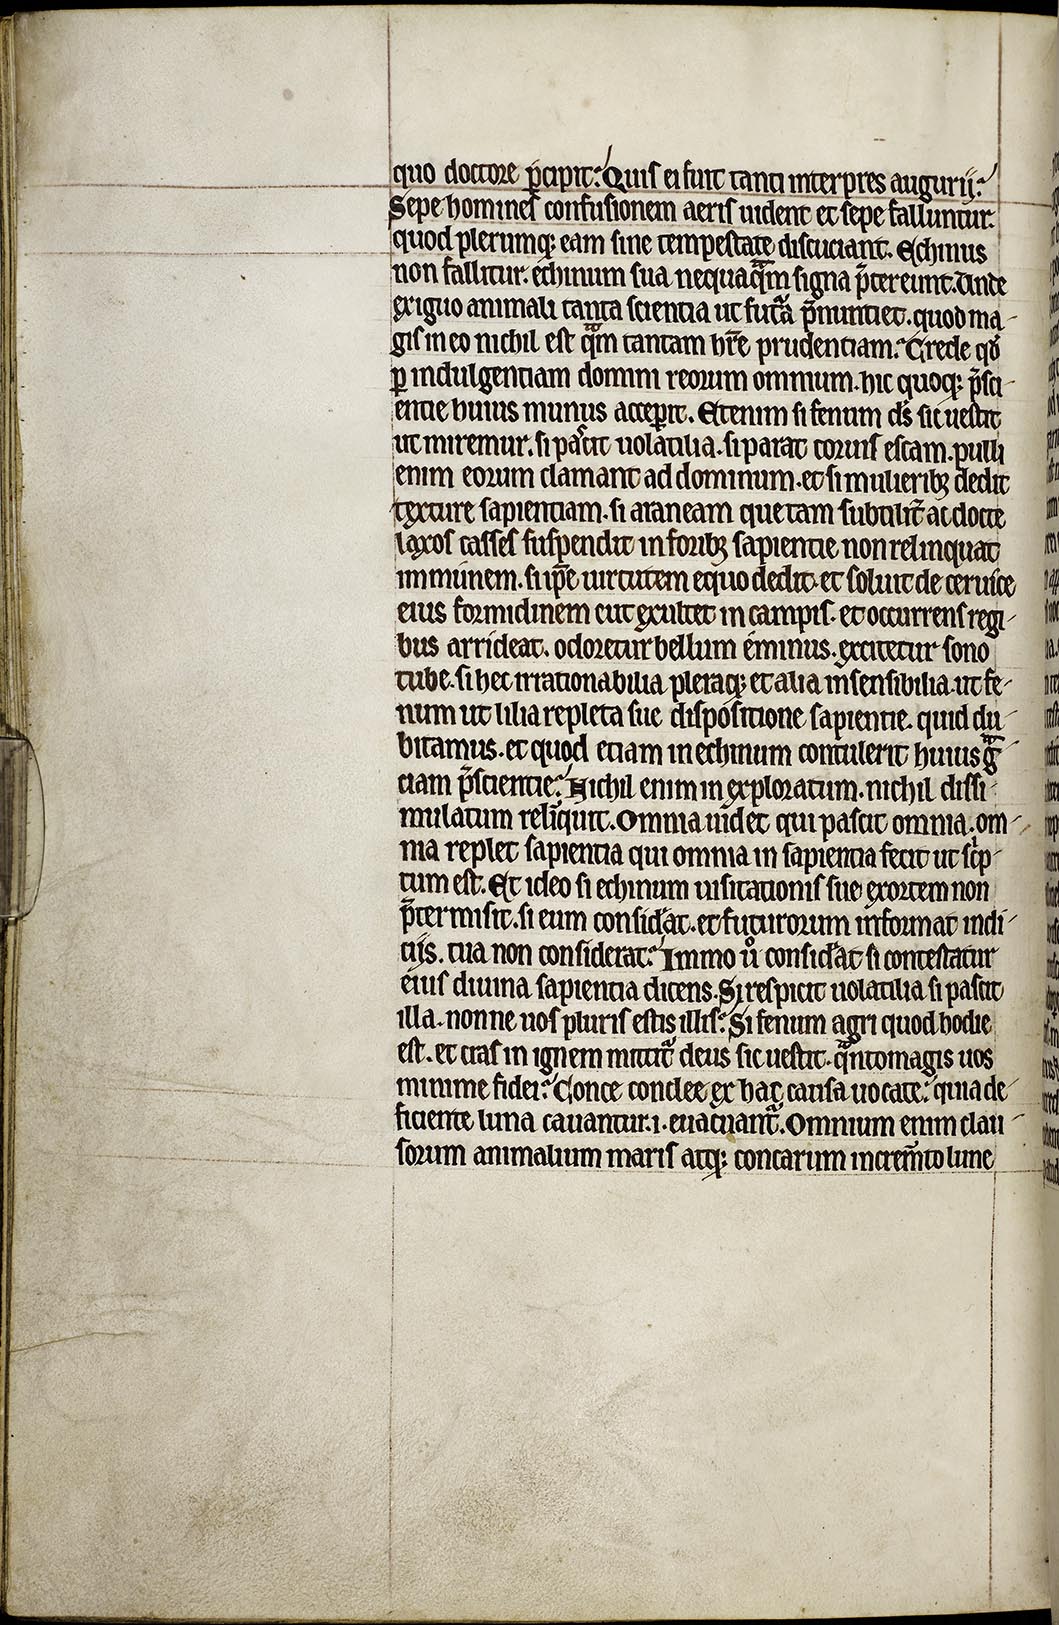 quo doctore p̄cipit? Quis ei fuit tanti interpres augurij?
Sepe homines confusionem aeris uident et sepe falluntur.
quod plerumq; eam sine tempestate discuciant. Echinus
non fallitur. echinum sua nequaqᵃm signa p̄tereunt. Vnde
exiguo animali tanta scientia ut futᵃ p̄nuntiet. quod ma-
gis in eo nichil est qᵃm tantam hr̄e prudentiam? Crede qđ
ꝑ indulgentiam domini reorum omnium. hic quoq; p̄sci-
entie huius munus acceꝑit. Etenim si fenum ds̄ sic uestit
ut miremur. si pascit uolatilia. si parat coruis escam. pulli
enim eorum clamant ad dominum. et si mulierib; dedit
texture sapientiam. si araneam que tam subtilit̄ ac docte
laxos casses suspendit in forib; sapientie non relinquat
immunem. si ip̄e uirtutem equo dedit. et soluit de ceruice
eius formidinem cut exultet in campis. et occurrens regi-
bus arrideat. odoretur bellum eminus. excitetur sono
tube. si hec irrationabilia pleraq; et alia insensibilia. ut fe-
num ut lilia repleta sue dispositione sapientie. quid du-
bitamus. et quod etiam in echinum contulerit huius gᵃ-
ciam p̄scientie? Nichil enim inexploratum. nichil dissi-
mulatum reliquit. Omnia uidet qui pascit omnia. om-
nia replet sapientia qui omnia in sapientia fecit ut scⁱp-
tum est. Et ideo si echinum uisitationis sue exortem non
p̄termisit. si eum consid̾at. et futurorum informat indi-
cijs. tua non considerat? Immo uͦ consid̾at si contestatur
eius diuina sapientia dicens. Si respicit uolatilia si pascit
illa. nonne uos pluris estis illis? Si fenum agri quod hodie
est. et cras in ignem mittit᷑ deus sic uestit. qᵃntomagis uos
minime fidei? Conce conclee ex hac causa uocate? quia de-
ficiente luna cauantur. i. euacuant᷑. Omnium enim clau-
sorum animalium maris atq; concarum increm̄to lune